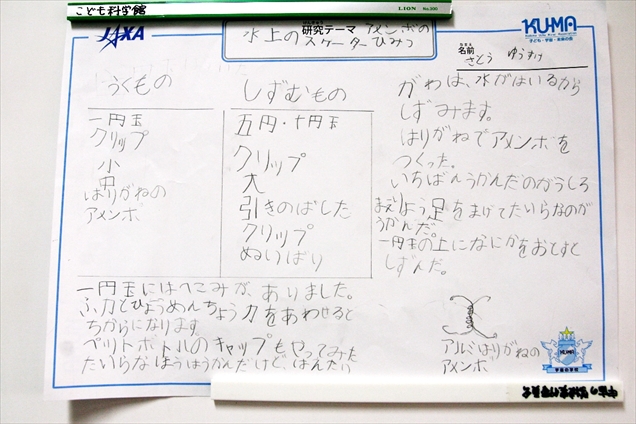 こども科学館
LION No.300
JAXA
研究テーマ
水上の アメンボの
スケーター ひみつ
KUMA
子ども・宇宙・未来の会
名前
さとう ゆうすけ
うくもの
一円玉
クリップ
小
中
はりがねの
アメンボ
しずむもの
五円・十円玉
クリップ
大
引きのばした
クリップ
ぬいばり
がわは、水がはいるから
しずみます。
はりがねでアメンボを
つくった。
いちばんうかんだのがうしろ
まえりょう足をまげてたいらなのが
うかんだ。
一円玉の上になにかをおとすと
しずんだ。
一円玉にはへこみが、ありました。
ふ力とひょうめんちょう力をあわせると
ちからになります
ペットボトルのキャップもやってみた
たいらなほうはうかんだけど、はんたい
アルミはりがねの
アメンボ
KUMA
宇宙の学校